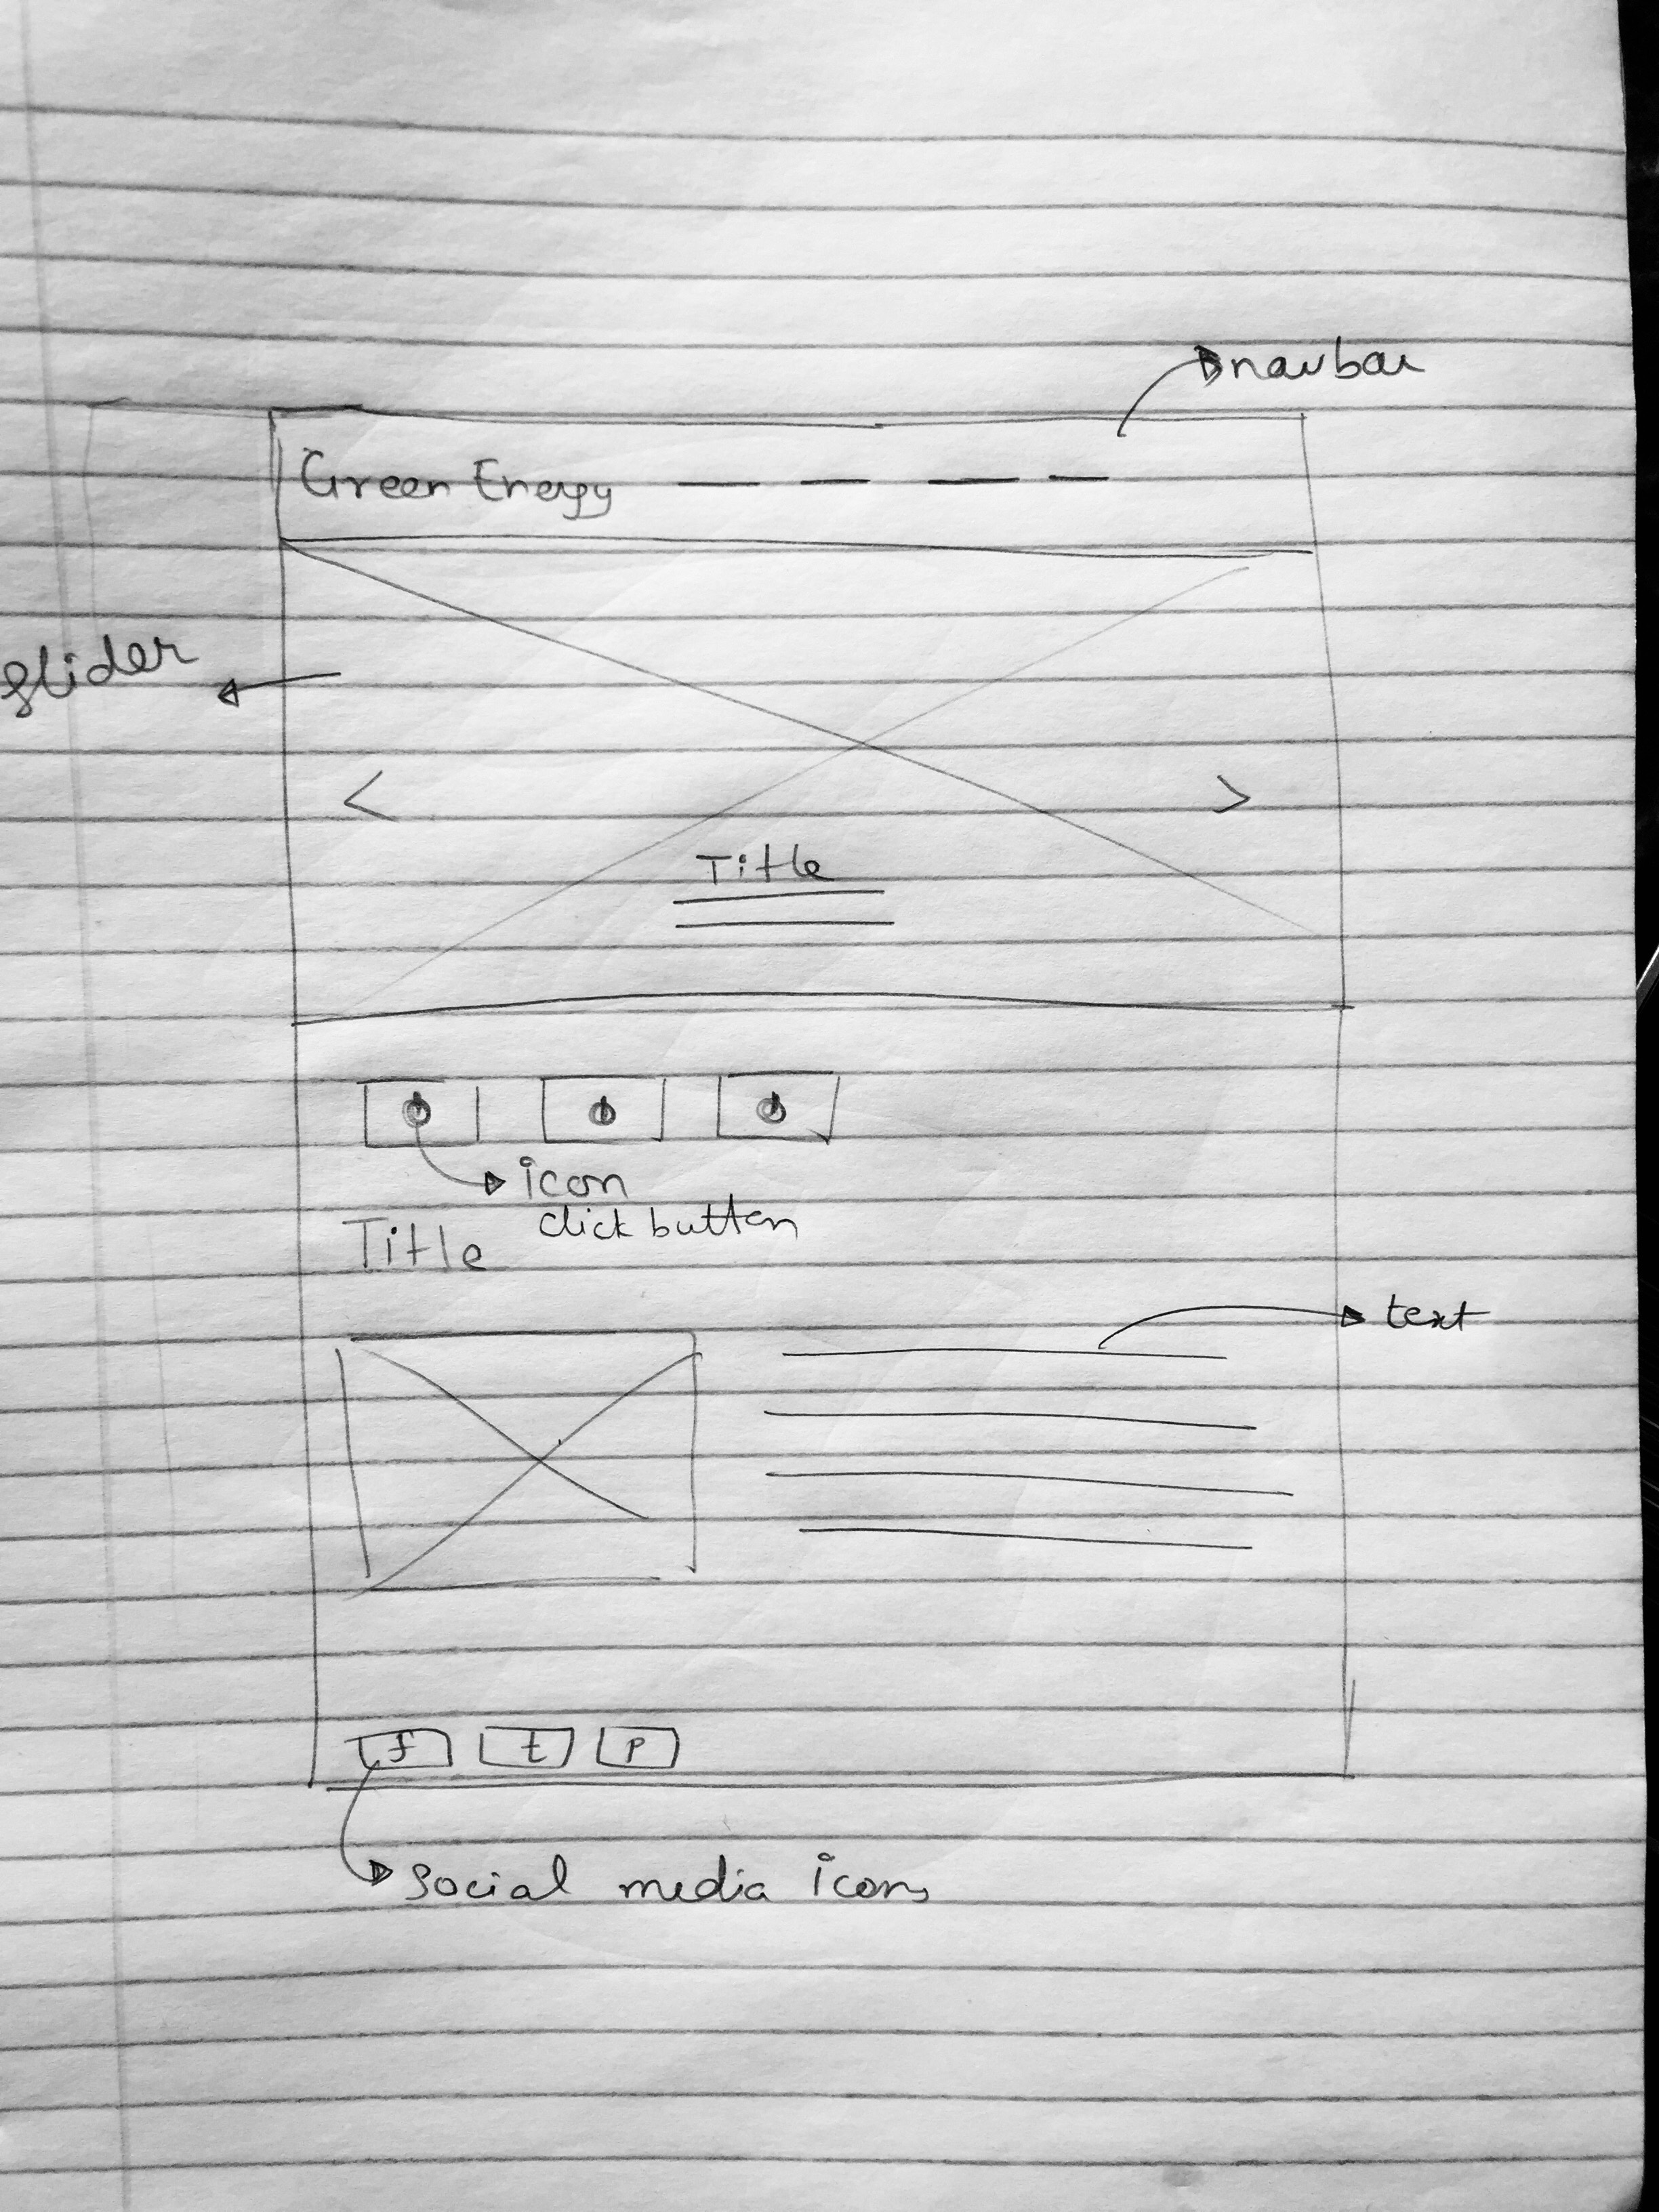 navbar
Green Energy
slider
<
>
Title
icon
click button
Title
text
f t p
social media icons